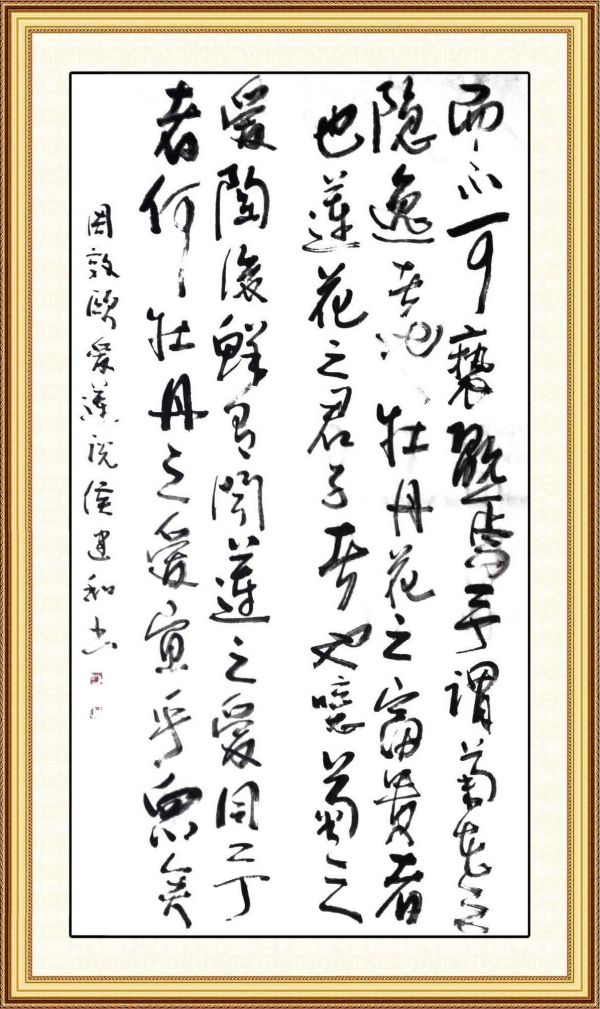 而不可褻翫焉予謂菊花之
隐逸者也牡丹花之富貴者
也蓮花之君子者也噫菊之
愛陶後鮮有聞蓮之愛同予
者何牡丹之愛宜乎眾矣
周敦頤愛蓮説侯建和书